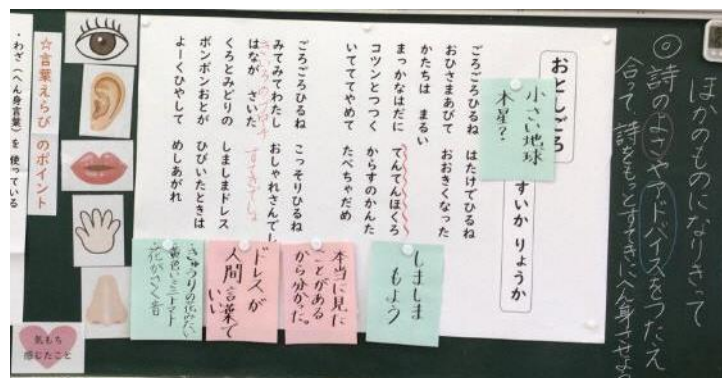 ほかのものになりきって
◎詩のよさやアドバイスをつたえ
合って 詩をもっとすてきにへん身させよう
おとしごろ
すいか りょうか
小さい地球
木星?
ごろごろひるね はたけでひるね
おひさまあびて おおきくなった
かたちは まるい
まっかなはだに てんてんほくろ
コツンとつつく からすのかんた
いてててやめて たべちゃだめ
ごろごろひるね こっそりひるね
みてみてわたし おしゃれさんでし
はなが さいた
くろとみどりの しましまドレス
ボンボンおとが ひびいたときは
よーくひやして めしあがれ
しましま
もよう
本当に見た
ことがある
から分かった。
ドレスが
人間言葉で
いい
・きゅうりの花みたい
黄色いミニトマト
花がさく音
☆言葉えらびのポイント
・わざ(へん身言葉)を使っている
気もち
感じたこと